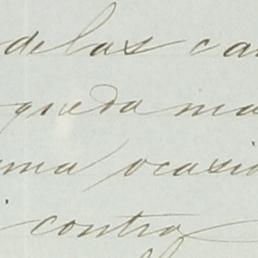 de las ca
queda ma
ma ocasi
contra